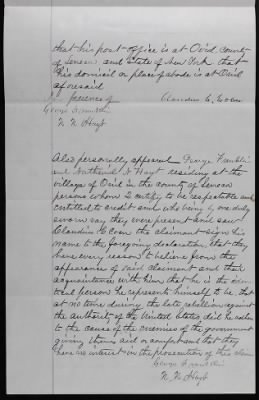 that his post office is at Ovid county
of Seneca and State of New York that
his domicil or place of abode is at Ovid
aforesaid
In presence of Claudius C Coan
George Franklin
N. N. Hayt
Also personally appeared George Franklin
and Nathaniel N Hayt residing at the
village of Ovid in the county of Seneca
persons whom I certify to be respectable and
entitled to credit and who being by me duly
sworn say they were present and saw
Claudius C Coan the claimant sign his
name to the foregoing declaration, that they
have every reason to believe from the
appearance of said claimant and their
acquaintance with him that he is the iden
tical person he represents himself to be that
at no time during the late rebellion against
the authority of the United States did he adhere
to the cause of the enemies of the government
giving them aid or comfort and that they
have no interest in the prosecution of this claim
George Franklin
N. N. Hayt